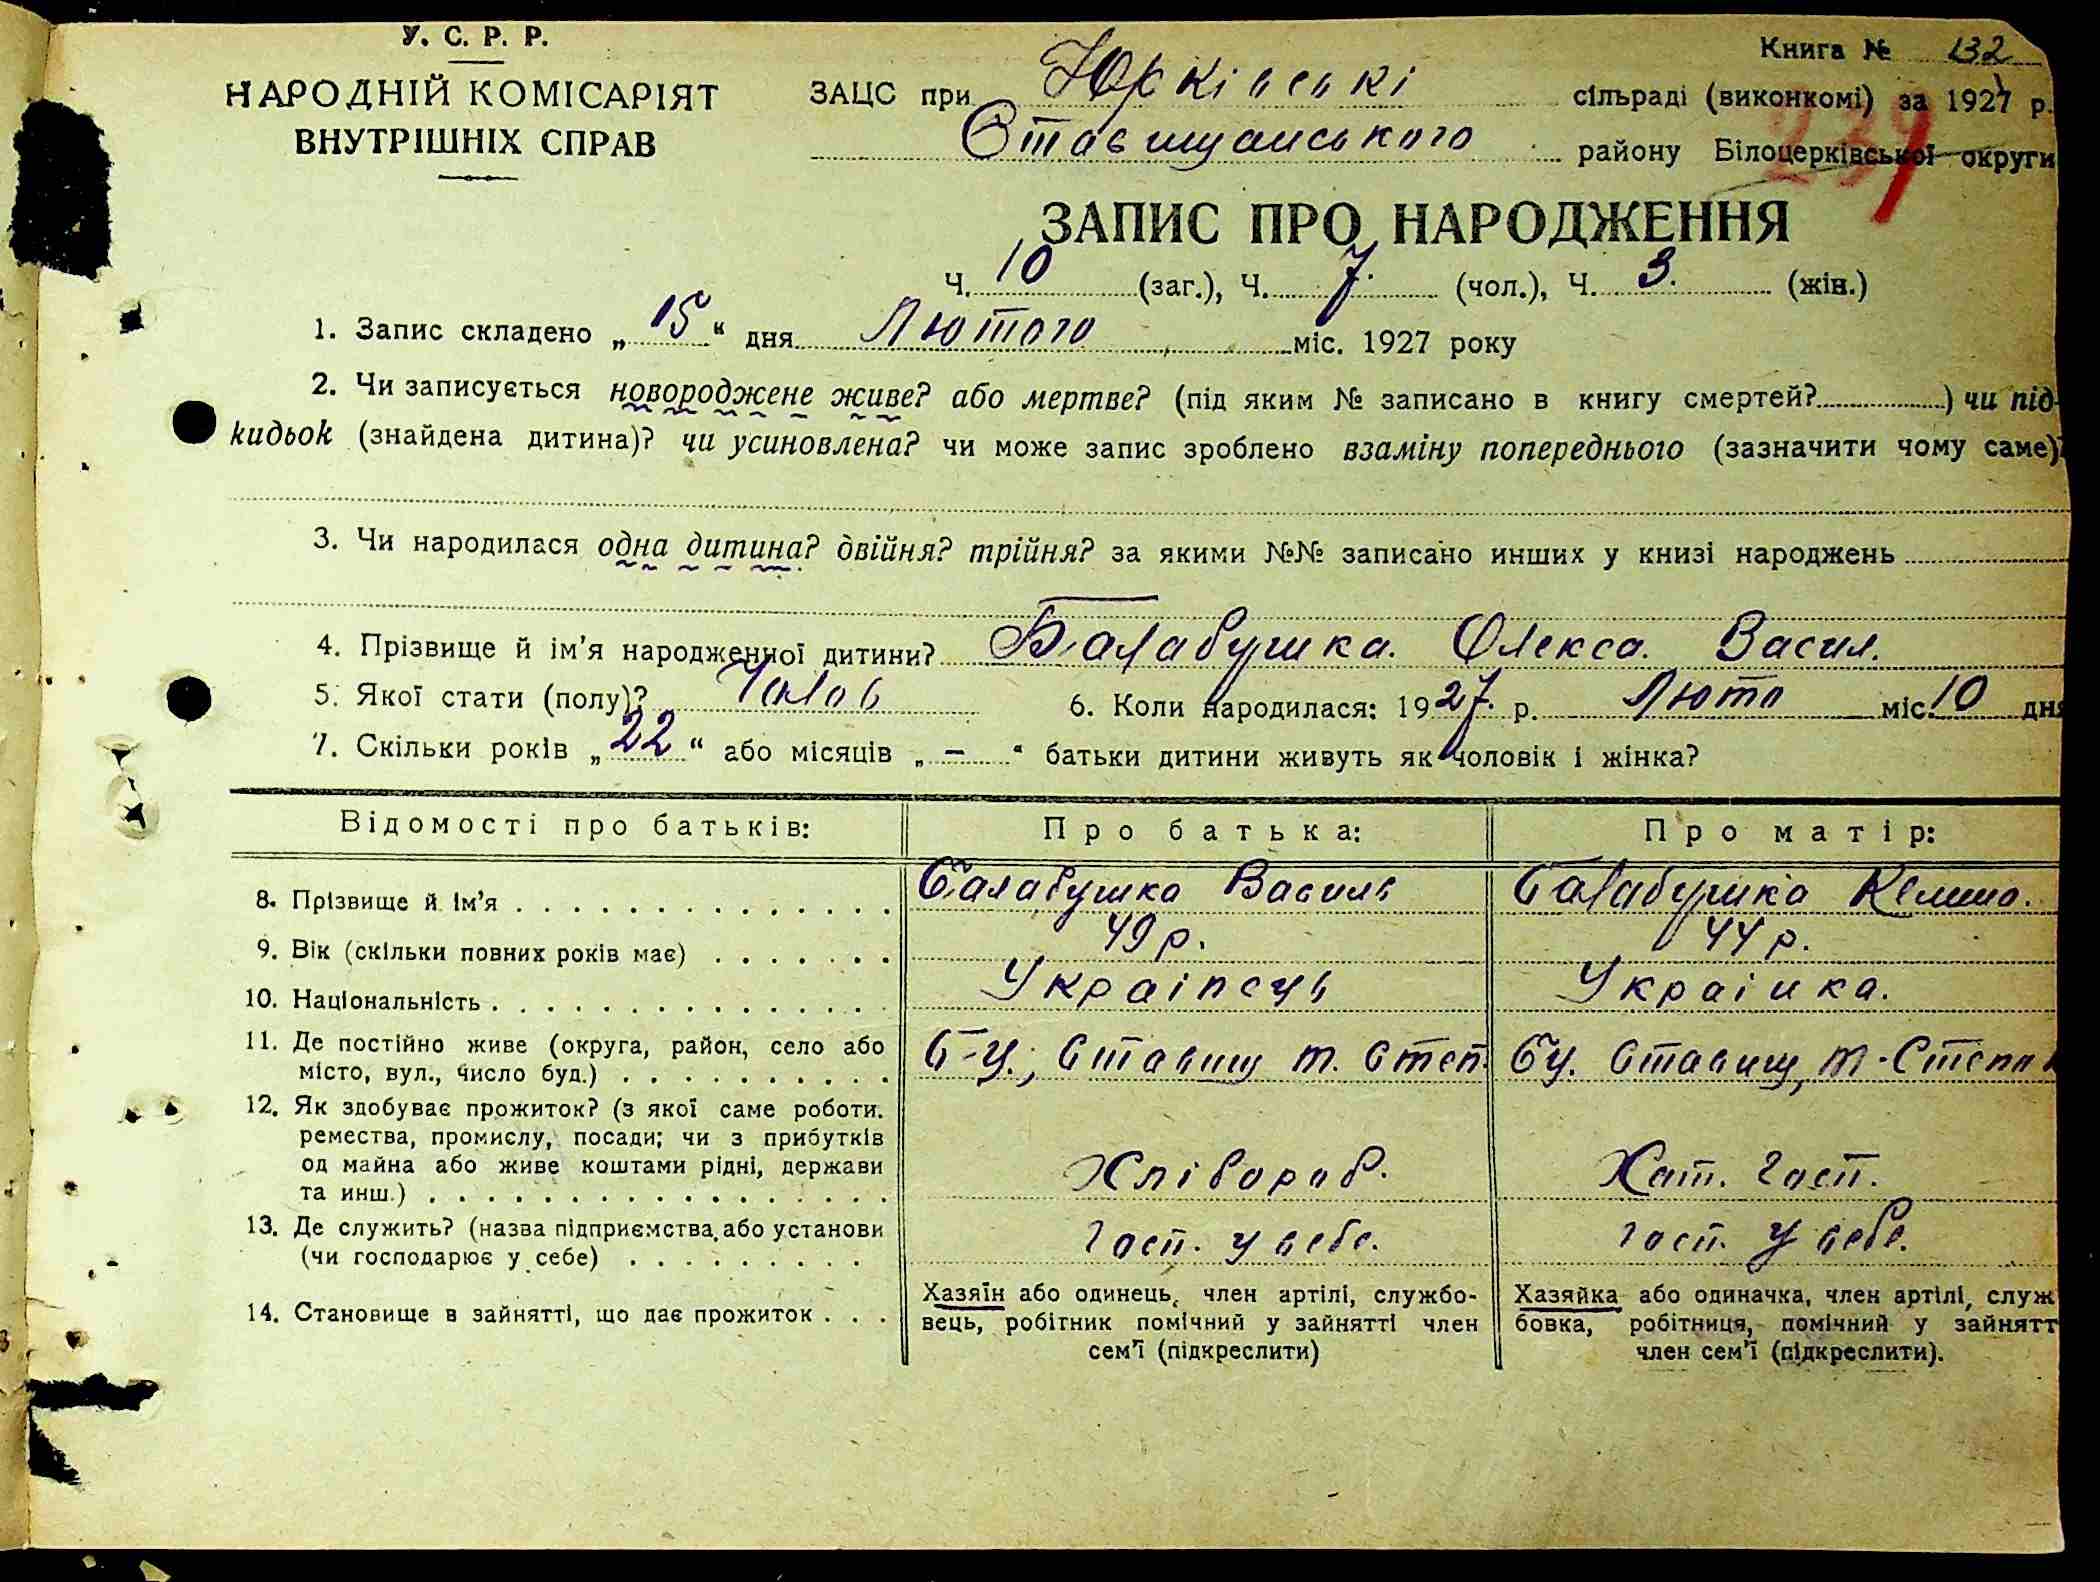 У. С. Р. Р.
НАРОДНІЙ КОМІСАРІЯТ
ВНУТРІШНІХ СПРАВ
Книга № 132
ЗАЦС при Юрківські сільраді (виконкомі) за 1927 р.
Ставищанського району Білоцерківської округи
239
ЗАПИС ПРО НАРОДЖЕННЯ
Ч. 10 (заг.), Ч. 7. (чол.), Ч. 3. (жін.)
1. Запис складено „15“ дня Лютого міс. 1927 року
2. Чи записується новороджене живе? або мертве? (під яким № записано в книгу смертей?) чи під-
кидьок (знайдена дитина)? чи усиновлена? чи може запис зроблено взаміну попереднього (зазначити чому саме)?
3. Чи народилася одна дитина? двійня? трійня? за якими №№ записано инших у книзі народжень
4. Прізвище й ім’я народженної дитини? Балабушка. Олекса. Васил.
5. Якої стати (полу)? Чолов 6. Коли народилася: 1927. р. Люто міс. 10 дня
7. Скільки років „22“ або місяців „—“ батьки дитини живуть як чоловік і жінка?
Відомості про батьків: Про батька: Про матір:
8. Прізвище й ім’я Балабушка Василь Балабушка
9. Вік (скільки повних років має) 49 р. 44 р.
10. Національність Українець Українка.
11. Де постійно живе (округа, район, село або
місто, вул., число буд.) Б-Ц.; Ставищ т. Степ. БЦ. Ставищ, т-Степ
12. Як здобуває прожиток? (з якої саме роботи.
ремества, промислу, посади; чи з прибутків
од майна або живе коштами рідні, держави
та инш.) Хлібороб. Хат. Госп.
13. Де служить? (назва підприємства, або установи
(чи господарює у себе) Госп. у себе. Госп. у себе.
14. Становище в зайнятті, що дає прожиток
Хазяїн або одинець, член артілі, службо-
вець, робітник помічний у зайнятті член
сем’ї (підкреслити)
Хазяйка або одиначка, член артілі, служ
бовка, робітниця, помічний у зайнятт
член сем’ї (підкреслити).